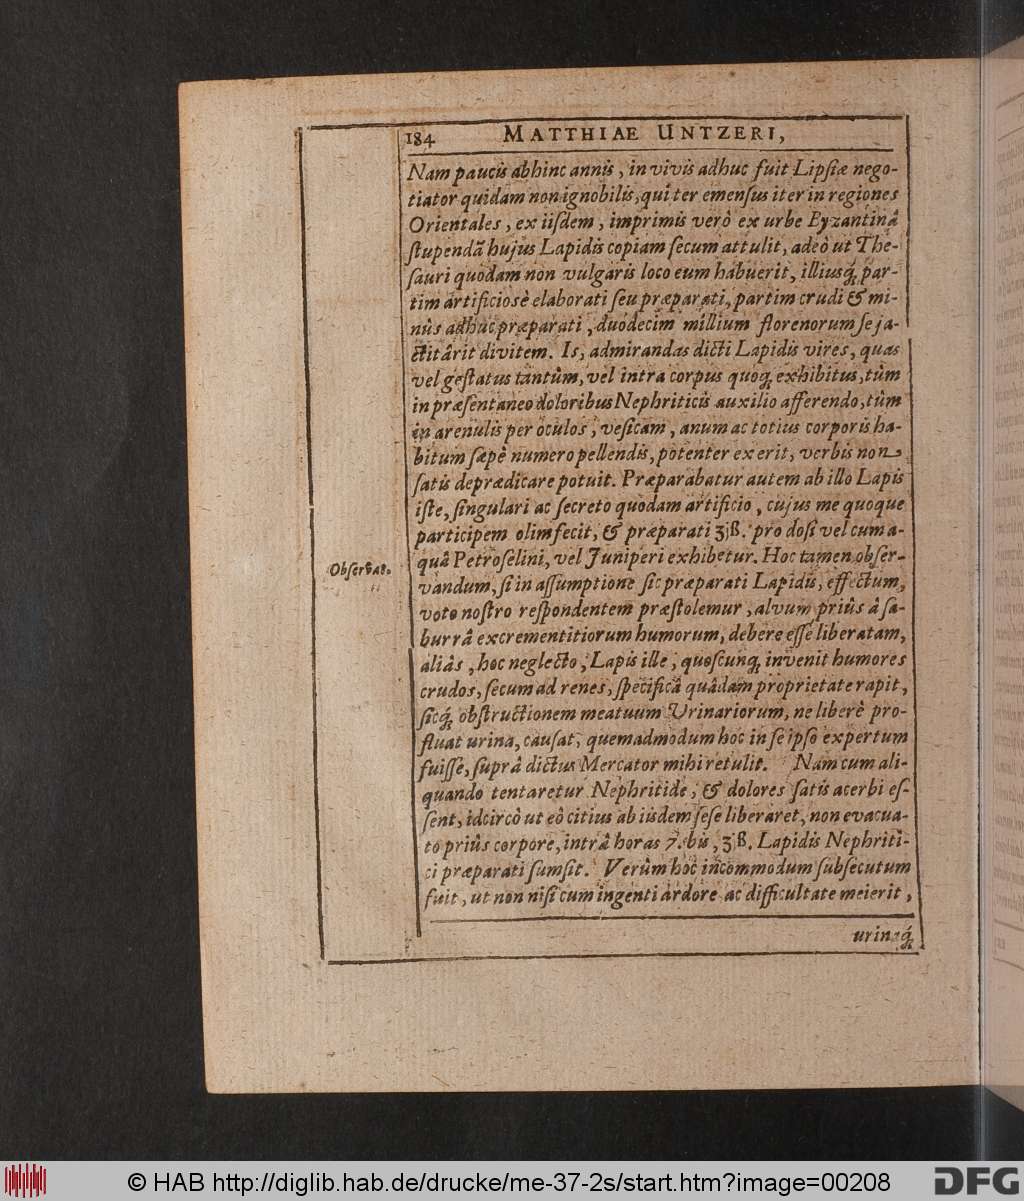 184 MATTHIAE UNTZERI,
Nam paucis abhinc annis, in vivis adhuc fuit Lipsiæ nego-
tiator quidam non ignobilis, qui ter emensus iter in regiones
Orientales, ex iisdem, imprimis verò ex urbe Byzantinâ
stupendã hujus Lapidis copiam secum attulit, adeò ut The-
sauri quodam non vulgaris loco eum habuerit, illiusq́; par-
tim artificiosè elaborati seu præparati, partim crudi & mi-
nûs adhuc præparati, duodecim millium florenorum se ja-
ctitârit divitem. Is, admirandas dicti Lapidis vires, quas
vel gestatus tantûm, vel intra corpus quoq; exhibitus, tùm
in præsentaneo doloribus Nephriticis auxilio afferendo, tùm
in arenulis per oculos, vesicam, anum ac totius corporis ha-
bitum sæpè numero pellendis, potenter exerit, verbis non
satis deprædicare potuit. Præparabatur autem ab illo Lapis
iste, singulari ac secreto quodam artificio, cujus me quoque
participem olim fecit, & præparati ʒjß. pro dosi vel cum a-
quâ Petroselini, vel Juniperi exhibetur. Hoc tamen obser-
Observat.
vandum, si in assumptione sic præparati Lapidis, effectum,
voto nostro respondentem præstolemur, alvum priûs â sa-
burrâ excrementitiorum humorum, debere esse liberatam,
aliâs, hoc neglecto, Lapis ille, quoscunq; invenit humores
crudos, secum ad renes, specificâ quâdam proprietate rapit,
sicq́; obstructionem meatuum Urinariorum, ne liberè pro-
fluat urina, causat, quemadmodum hoc in se ipso expertum
fuisse, suprâ dictus Mercator mihi retulit. Nam cum ali-
quando tentaretur Nephritide, & dolores satis acerbi es-
sent, idcircò ut eô citius ab iisdem sese liberaret, non evacua-
to priûs corpore, intrâ horas 7. bis, ʒjß. Lapidis Nephriti-
ci præparati sumsit. Verûm hoc incommodum subsecutum
fuit, ut non nisi cum ingenti ardore ac difficultate meierit,
urinaq́;
© HAB http://diglib.hab.de/drucke/me-37-2s/start.htm?image=00208
DFG